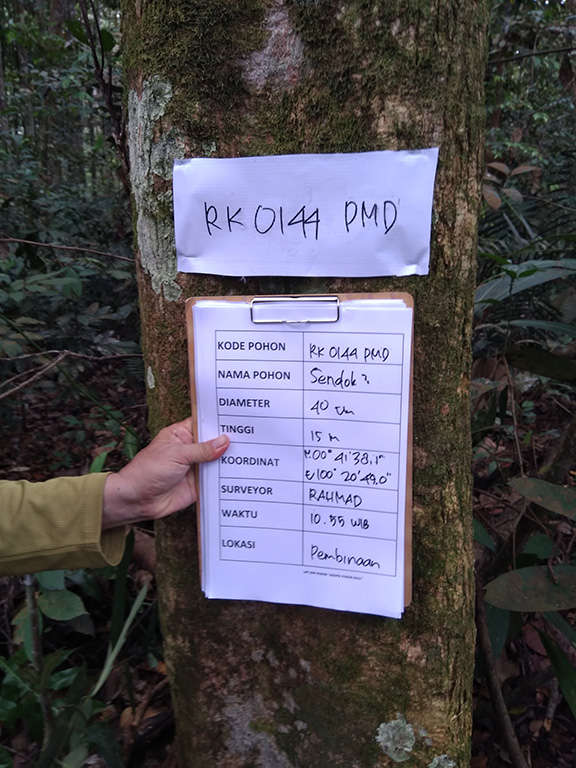 RK 0144 PMD
KODE POHON RK 0144 PMD
NAMA POHON Sendok2
DIAMETER 40 cm
TINGGI 15 m
KOORDINAT N.00° 41'38,1"
E/100° 20'49.0"
SURVEYOR RAHMAD
WAKTU 10.55 WIB
LOKASI Pembinaan